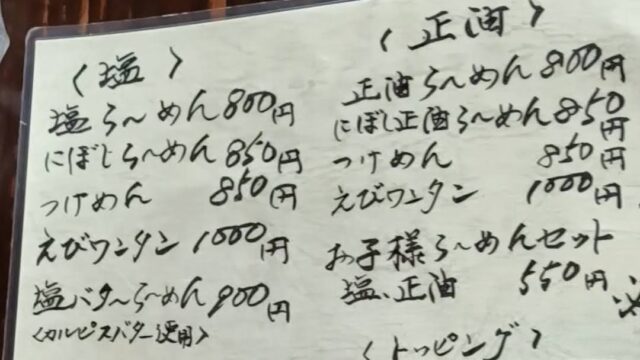 〈塩〉
塩ら〜めん 800円
にぼしら〜めん 850円
つけめん 850円
えびワンタン 1000円
塩バターら〜めん 900円
〈カルピスバター使用〉
〈正油〉
正油ら〜めん 800円
にぼし正油ら〜めん 850円
つけめん 850円
えびワンタン 1000円
お子様ら〜めんセット
塩、正油 550円
〈トッピング〉